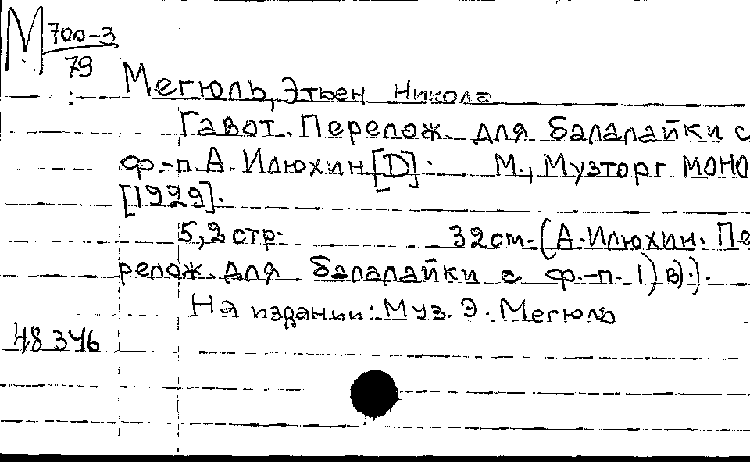 М 700-3
79
Мегюль, Этьен Никола
Гавот. Перелож. для балалайки с
ф.-п. А. Илюхин [D]. М., Музторг МОНО
[1929].
5,2 стр. 32 cm. (А. Илюхин. Пе
релож. для балалайки с ф.-п. 1) в).).
На издании: Муз. Э. Мегюль
48346